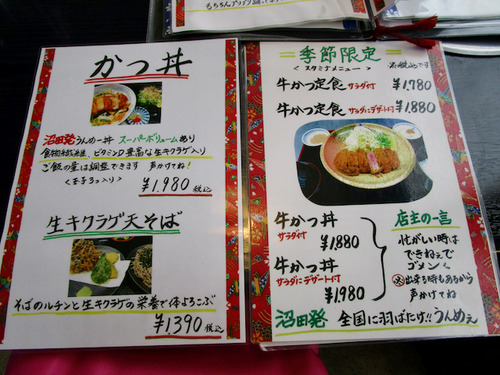 かつ丼
沼田発 うんめー丼 スーパーボリュームあり
食物せんい、ビタミンD豊富な生キクラゲ入り
ご飯の量は調整できます 声かけてね!
¥1,980 税込
生キクラゲ天そば
そばのルチンと生キクラゲの栄養で体よろこぶ
¥1390 税込
季節限定
<スタミナメニュー>
牛かつ定食 サラダ付 ¥1,780
牛かつ定食 サラダにデザート付 ¥1,880
牛かつ丼
サラダ付
¥1,880
牛かつ丼
サラダにデザート付
¥1,980
店主の一言
忙がしい時は
できねぇで
ゴメンく
出来る時もあるから
声かけてね
沼田発 全国に羽ばたけ!!うんめぇ